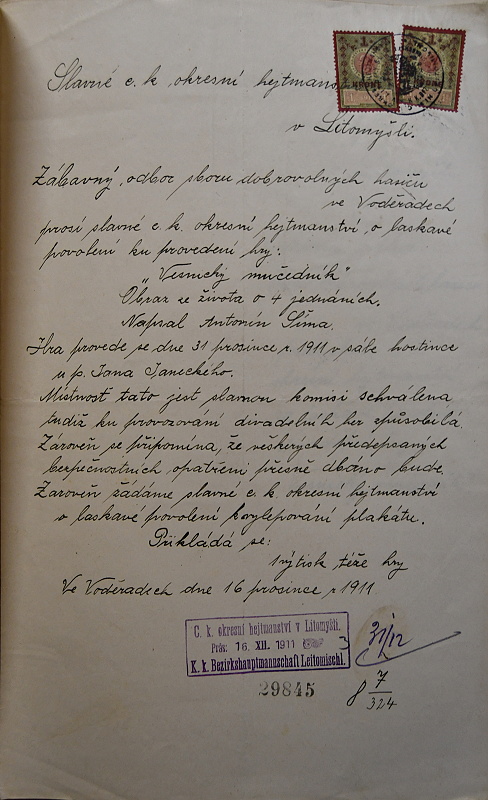 Slavné c. k. okresní hejtmans
v Litomyšli.
Zábavný odbor sboru dobrovolných hasičů
ve Voděradech
prosí slavné c. k. okresní hejtmanství o laskavé
povolení ku provedení hry:
„Vesnický mučedník"
Obraz ze života o 4 jednáních.
Napsal Antonín Šíma.
Hra provede se dne 31 prosince r. 1911 v sále hostince
u p. Jana Janeckého.
Místnost tato jest slavnou komisí schválena
tudíž ku provozování divadelníh her způsobilá.
Zároveň se připomíná, že veškerých předepsaných
bezpečnostních opatření přesně dbáno bude.
Zároveň žádáme slavné c. k. okresní hejtmanství
o laskavé povolení ku vylepování plakátů.
Přikládá se:
1 výtisk téže hry
Ve Voděradech dne 16 prosince r 1911
C. k. okresní hejtmanství v Litomyšli.
Präs: 16. XII. 1911
K. k. Bezirkshauptmannschaft Leitomischl.
29845
31/12
8 7/324